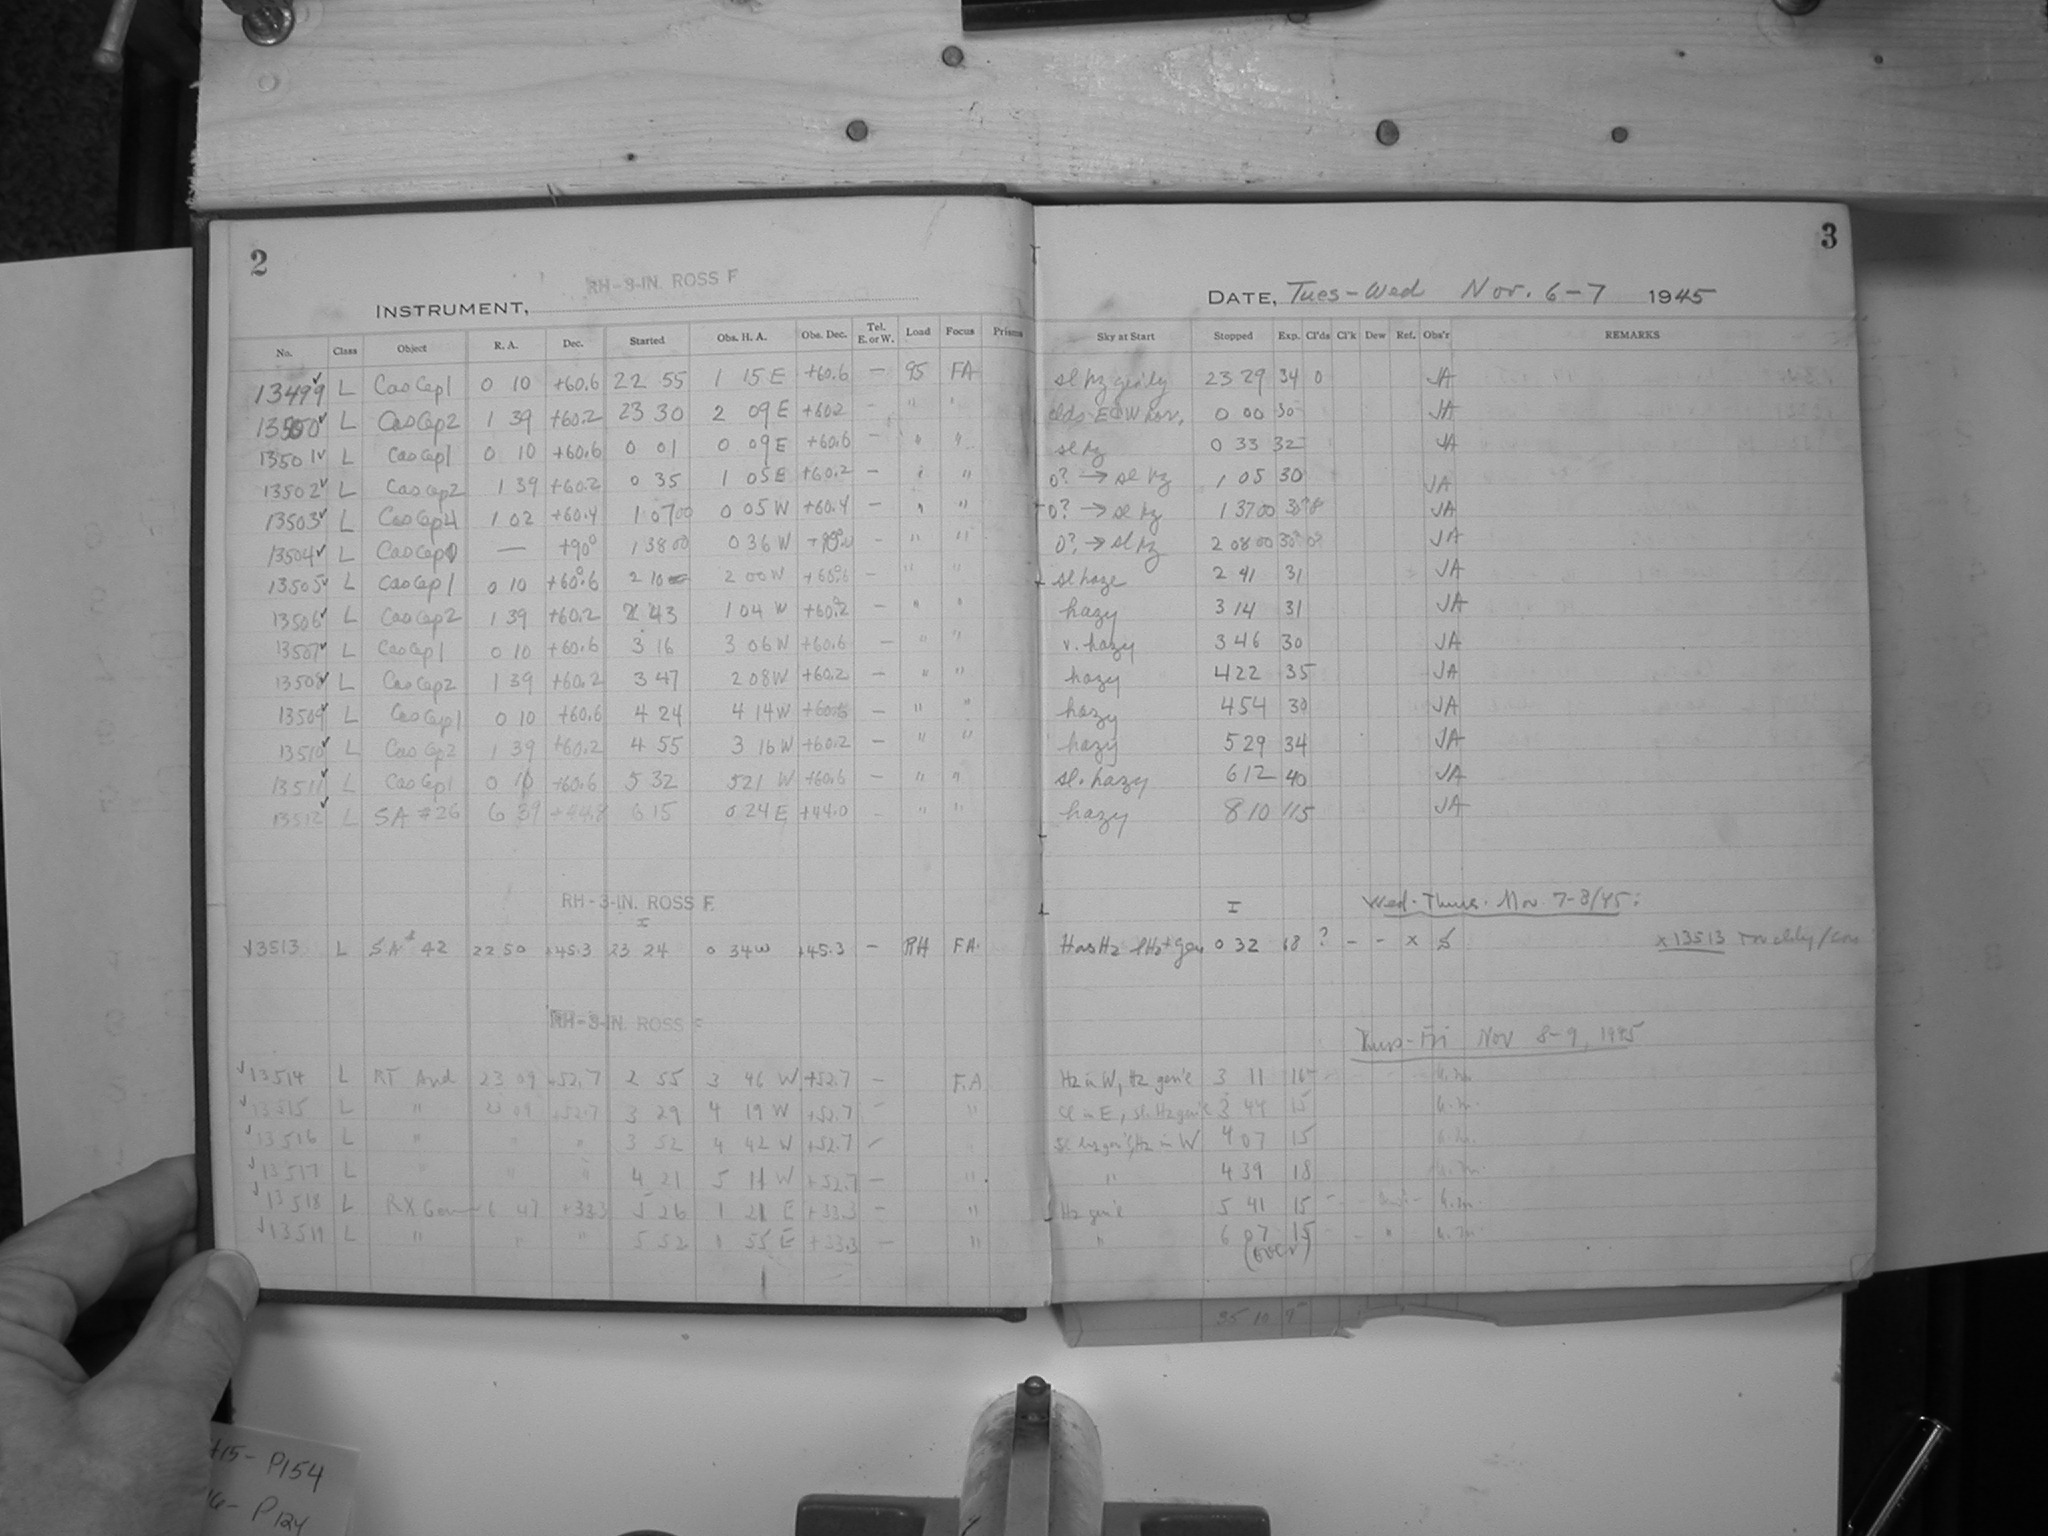 2
RH-3-IN. ROSS F
INSTRUMENT,
No. Class Object R. A. Dec. Started Obs. H. A. Obs. Dec. Tel. E. or W. Load Focus Prisms
13499 L CasCep1 0 10 +60.6 22 55 1 15 E +60.6 — 95 FA
13500 L CasCep2 1 39 +60.2 23 30 2 09 E +60.2 - " "
13501 L CasCep1 0 10 +60.6 0 01 0 09 E +60.6 - " "
13502 L CasCep2 1 39 +60.2 0 35 1 05 E +60.2 — " "
13503 L CasCep4 1 02 +60.4 1 07 00 0 05 W +60.4 — " "
13504 L — +90° 1 38 00 0 36 W - " "
13505 L CasCep1 0 10 +60.6 2 10 2 00 W +60.6 — " "
13506 L CasCep2 1 39 +60.2 2 43 1 04 W +60.2 — " "
13507 L CasCep1 0 10 +60.6 3 16 3 06 W +60.6 — " "
13508 L CasCep2 1 39 +60.2 3 47 2 08 W +60.2 — " "
13509 L CasCep1 0 10 +60.6 4 24 4 14 W +60.6 — " "
13510 L CasCep2 1 39 +60.2 4 55 3 16 W +60.2 — " "
13511 L CasCep1 0 10 +60.6 5 32 5 21 W +60.6 — " "
13512 L SA #26 6 39 6 15 0 24 E +44.0 - " "
RH-3-IN. ROSS F.
I
13513 L SA# 42 22 50 +45.3 23 24 0 34 W +45.3 — RH FA
RH-3-IN. ROSS F
13514 L RT And 23 09 +52.7 2 55 3 46 W +52.7 — F.A
13515 L " 23 09 +52.7 3 29 4 19 W +52.7 - "
13516 L " " " 3 52 4 42 W +52.7 -
13517 L " " " 4 21 5 11 W +52.7 — "
13518 L RX Gem 6 47 +33.3 5 26 1 21 E +33.3 — "
13519 L " " " 5 52 55 E +33.3 — "
3
DATE, Tues - Wed Nov. 6-7 1945
Sky at Start Stopped Exp. Cl'ds Cl'k Dew Ref. Obs'r REMARKS
sl hz gen'ly 23 29 34 0 JA
clds E & W hor. 0 00 30 JA
sl hz 0 33 32 JA
0? → sl hz 1 05 30 JA
0? → sl hz 1 37 00 JA
0? → sl hz 2 08 00 JA
sl haze 2 41 31 JA
hazy 3 14 31 JA
v. hazy 3 46 30 JA
hazy 4 22 35 JA
hazy 4 54 30 JA
hazy 5 29 34 JA
sl. hazy 6 12 40 JA
hazy 8 10 115 JA
I Wed-Thurs. Nov. 7-8/45:
0 32 68 ? - - x x 13513
Thurs-Fri Nov 8-9, 1945
Hz in W, Hz gen'l 3 11 16
Cl in E, sl. Hz gen'l 3 44 15
4 07 15
" 4 39 18
Hz gen'l 5 41 15
" 6 07 15
(over)
35 10 9
P154
P124